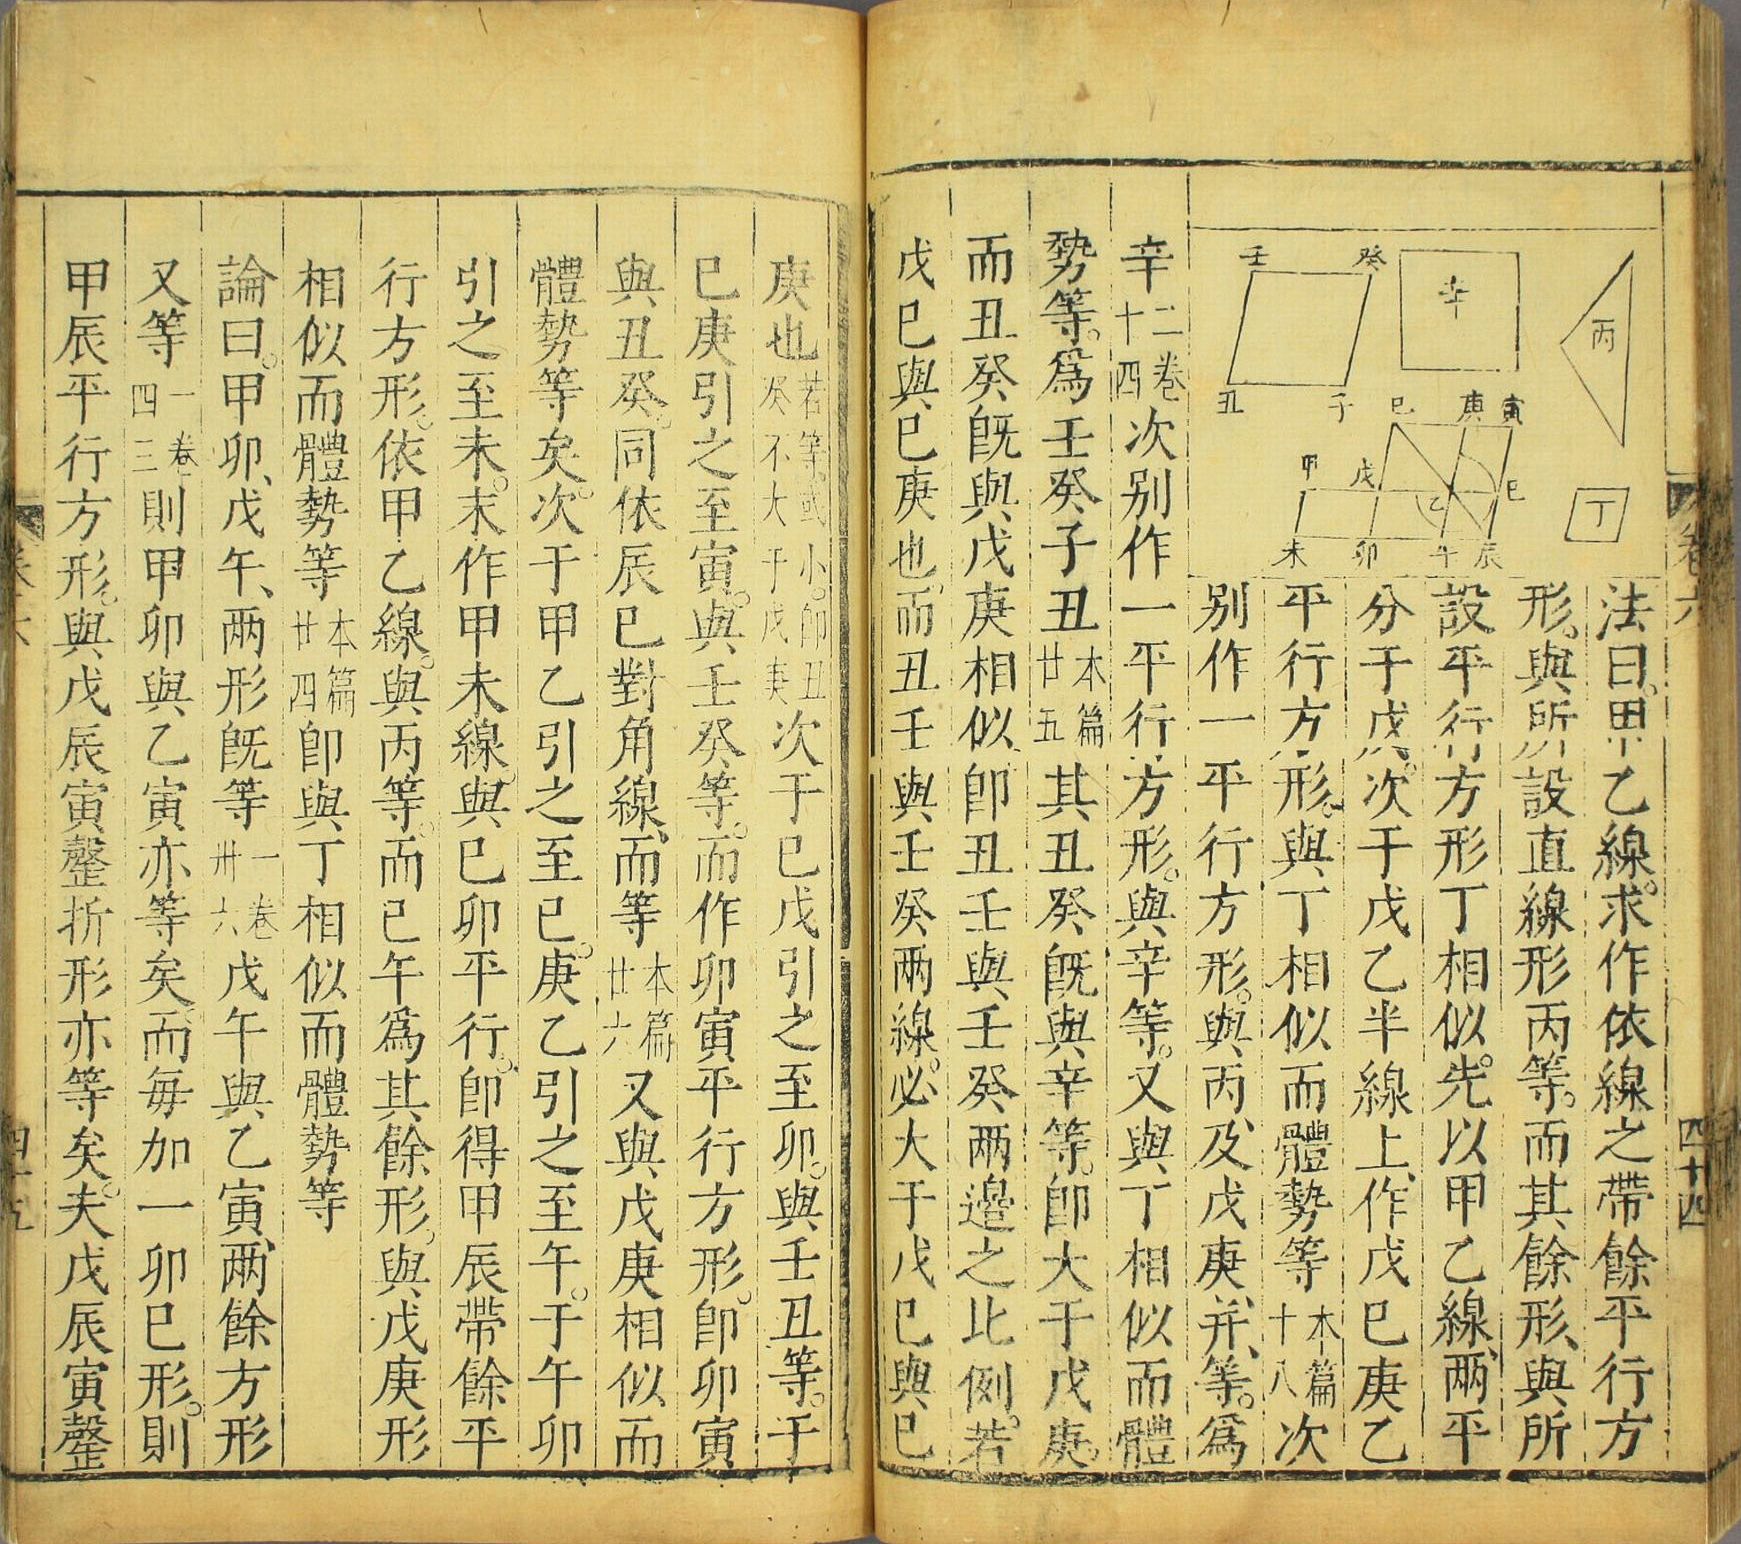 卷六
四十四
丙
丁
辛
癸
壬
丑
子
巳
庚
寅
甲
戊
乙
巳
未
卯
午
辰
法曰甲乙線求作依線之帶餘平行方
形與所設直線形丙等而其餘形與所
設平行方形丁相似先以甲乙線兩平
分于戊次于戊乙半線上作戊巳庚乙
平行方形與丁相似而體勢等本篇十八次
別作一平行方形與丙及戊庚并等為
辛二卷十四次別作一平行方形與辛等又與丁相似而體
勢等為壬癸子丑本篇廿五其丑癸旣與辛等卽大于戊庚
而丑癸旣與戊庚相似卽丑壬與壬癸兩邊之比例若
戊巳與巳庚也而丑壬與壬癸兩線必大于戊巳與巳
庚也若等或小卽丑癸不大于戊庚次于巳戊引之至卯與壬丑等于
巳庚引之至寅與壬癸等而作卯寅平行方形卽卯寅
與丑癸同依辰巳對角線而等本篇廿六又與戊庚相似而
體勢等矣次于甲乙引之至巳庚乙引之至午于午卯
引之至未末作甲未線與巳卯平行卽得甲辰帶餘平
行方形依甲乙線與丙等而巳午為其餘形與戊庚形
相似而體勢等本篇廿四卽與丁相似而體勢等
論曰甲卯戊午兩形旣等一卷卅六戊午與乙寅兩餘方形
又等一卷四三則甲卯與乙寅亦等矣而每加一卯巳形則
甲辰平行方形與戊辰寅罄折形亦等矣夫戊辰寅罄
卷六